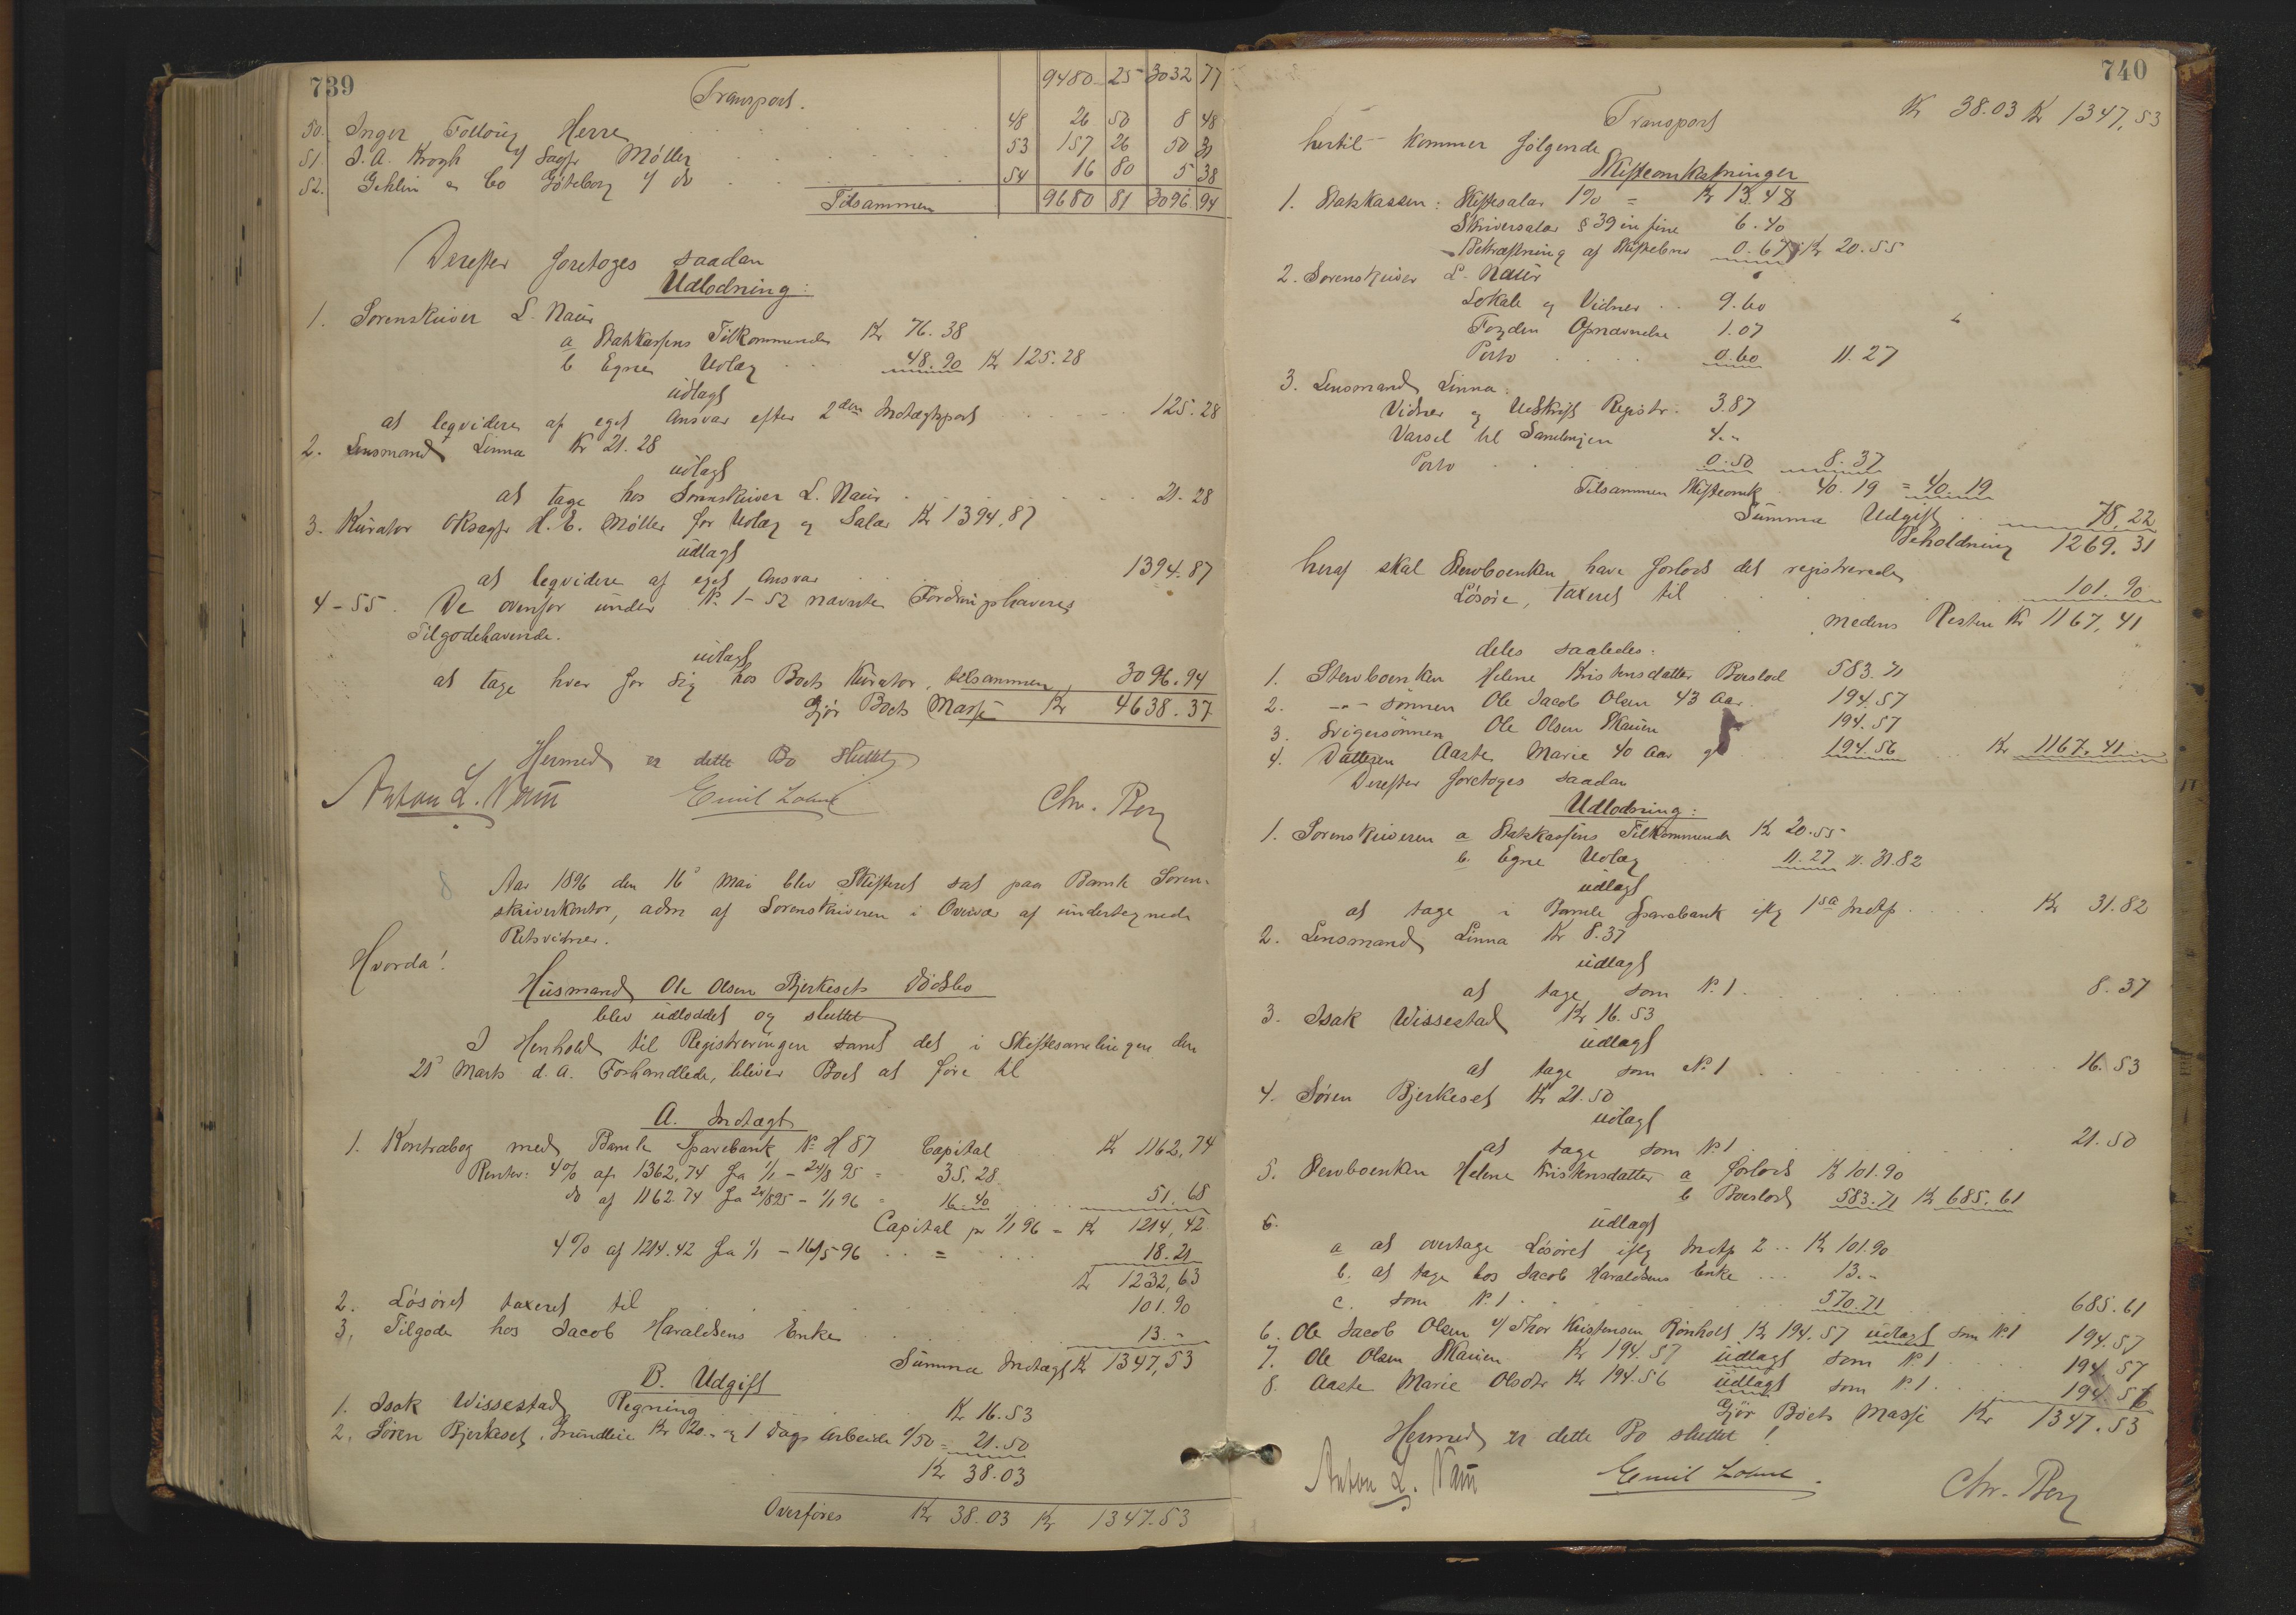 739
Transport. 9480 25 3032 77
50. Inger Herre 48 26 50 8 48
51. J. A. Krogh v/ Sagfr Møller 53 157 26 50 31
52. Gehlin & Co Göteborg v/ do 54 16 80 5 38
Tilsammen 9680 81 3096 94
Derefter foretoges saadan
Udlodning:
1. Sorenskriver L. Naur
a Statskassens Tilkommende Kr 76.38
b Egne Udlæg 48.90 Kr 125.28
udlagt
at leqvidere af eget Ansvar efter 2den Indtægtspost 125.28
2. Lensmand Linna Kr 21.28
udlagt
at tage hos Sorenskriver L. Naur 21.28
3. Kurator Oksagfr H. E. Møller for Udlæg og Salær Kr 1394,87
udlagt
at leqvidere af eget Ansvar 1394.87
4-55. De ovenfor under No 1-52 nævnte Fordringshaveres
Tilgodehavende.
udlagt
at tage hver for sig hos Boets Kurator, tilsammen 3096.94
Gjør Boets Masse Kr 4638.37
Hermed er dette Bo sluttet
Anton L. Naur Emil Chr. Berg
8
Aar 1896 den 16de Mai blev Skifteret sat paa Bamle Soren-
skriverkontor, adm af Sorenskriveren i Overvær af undertegnede
Retsvidner.
Hvorda!
Husmand Ole Olsen Bjerkesets Dødsbo
blev udloddet og sluttet
I Henhold til Registreringen samt det i Skiftesamlingen den
21de Marts d. A. Forhandlede, bliver Boet at føre til
A. Indtægt
1. Kontrabog med Bamle Sparebank No H 87 Capital Kr 1162,74
Renter: 4% af 1362,74 fra 1/1 - 24/8 95 = 35.28
do af 1162.74 fra 24/8 95 - 1/1 96 = 16.40 51.68
Capital pr 1/1 96 = Kr 1214,42
4% af 1214.42 fra 1/1 - 16/5 96 = 18.21
Kr 1232,63
2. Løsøret taxeret til 101.90
3. Tilgode hos Jacob Haraldsens Enke 13.-
Summa Indtægt Kr 1347,53
B. Udgift
1. Isak Wissestad Regning Kr 16.53
2. Søren Bjerkeset, Grundleie Kr 20.- og 1 Dags Arbeide 1/50 = 21.50
Kr 38.03
Overføres Kr 38.03 Kr 1347.53
740
Transport Kr 38.03 Kr 1347,53
hertil kommer følgende
Skifteomkostninger
1. Statskassen: Skiftesalær 1% = Kr 13.48
Skriversalær § 39 in fine 6.40
Bekræftning af Skiftebrev 0.67 Kr 20.55
2. Sorenskriver L. Naur
Lokale og Vidner 9.60
Fogden Opnævnelse 1.07
Porto 0.60 11.27
3. Lensmand Linna.
Vidner og Udskrift Registr. 3.87
Varsel til Samlingen 4.-
Porto 0.50 8.37
Tilsammen Skifteomk 40.19 = 40.19
Summa Udgift 78,22
Beholdning 1269.31
heraf skal Stervboenken have forlods det registrerede
Løsøre, taxeret til 101.90
medens Resten Kr 1167,41
deles saaledes:
1. Stervboenken Helene Kristensdatter Boeslod 583.71
2. -"- Sønnen Ole Jacob Olsen 43 Aar 194.57
3. Svigersønnen Ole Olsen Skauen 194.57
4. Datteren Aaste Marie 40 Aar g 194.56 Kr 1167.41
Derefter foretoges saadan
Udlodning:
1. Sorenskriveren a Statskassens Tilkommende Kr 20.55
b. Egne Udlæg 11.27 Kr. 31.82
udlagt
at tage i Bamle Sparebank iflg 1ste Indtp. Kr 31.82
2. Lensmand Linna Kr 8.37
udlagt
at tage som No 1. 8.37
3. Isak Wissestad Kr 16.53
udlagt
at tage som No 1 16.53
4. Søren Bjerkeset Kr 21.50
udlagt
at tage som No 1 21.50
5. Stervboenken Helene Kristensdatter a forlods Kr 101.90
b Boeslod 583.71 Kr 685.61
6. udlagt
a at overtage Løsøret iflg Indtp 2 Kr 101.90
b. at tage hos Jacob Haraldsens Enke 13.-
c. som No 1 570.71 685.61
6. Ole Jacob Olsen v/ Thor Kristensen Rønholt Kr 194.57 udlagt som No 1 194.57
7. Ole Olsen Skauen Kr 194.57 udlagt som No 1 194.57
8. Aaste Marie Olsdtr Kr 194.56 udlagt som No 1. 194.56
Gjør Boets Masse Kr 1347.53
Hermed er dette Bo sluttet!
Anton L. Naur Emil Chr. Berg